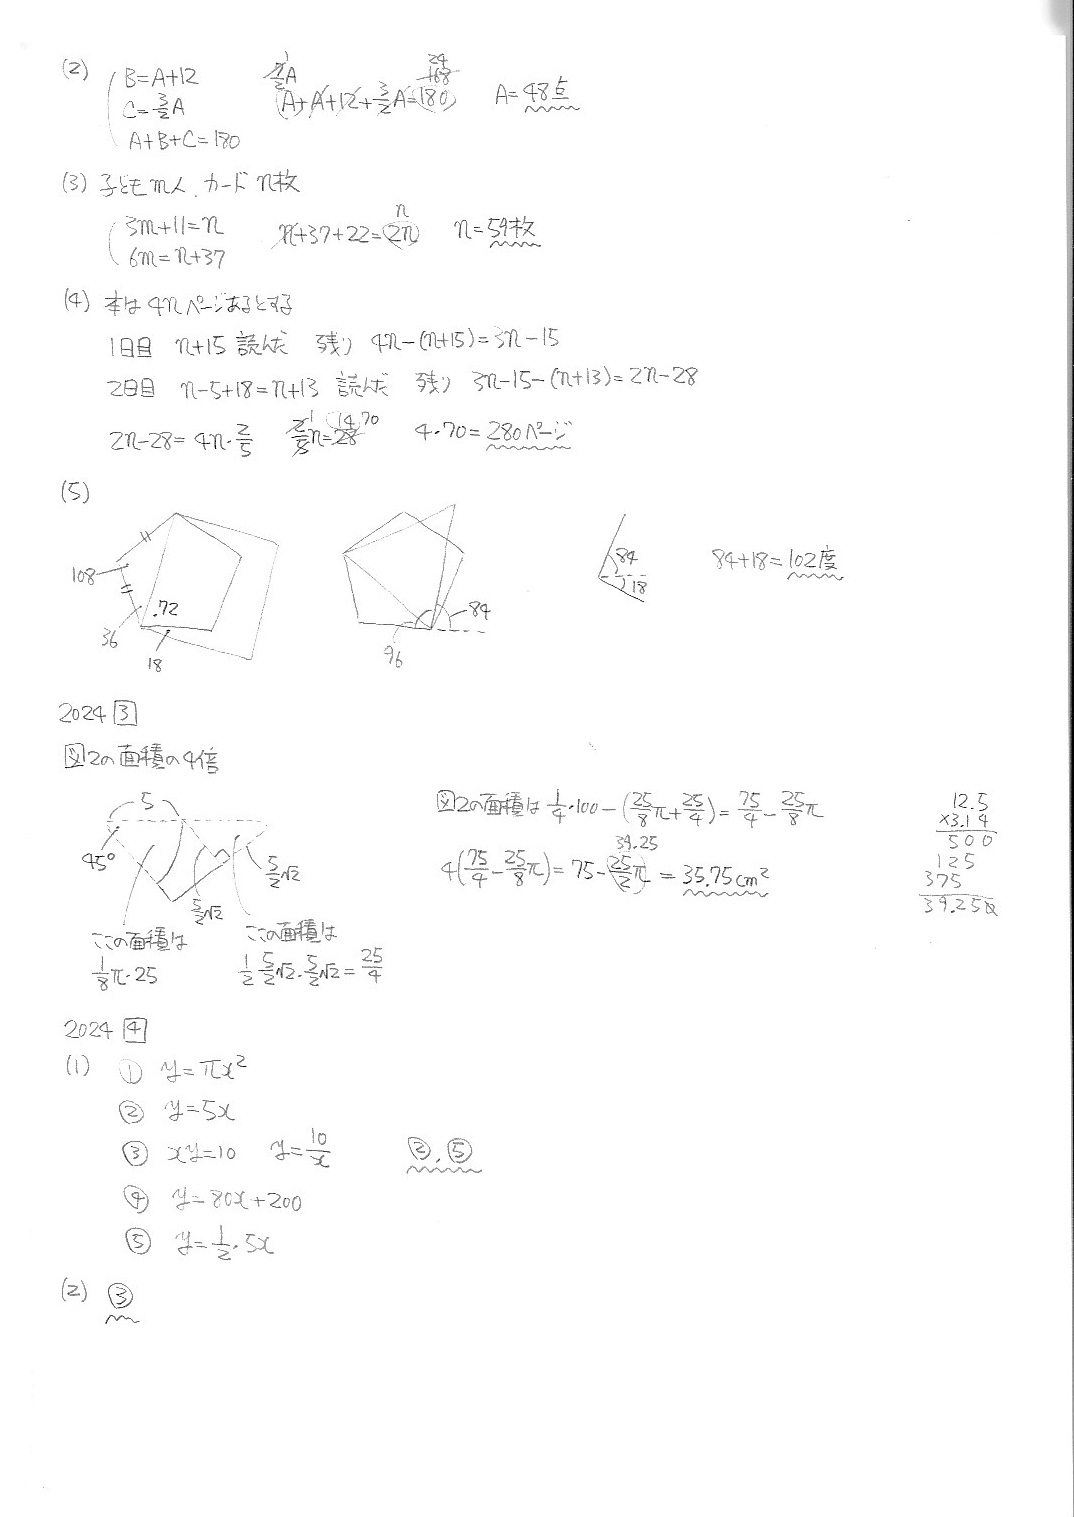 (2) B=A+12
C=3/2A
A+B+C=180
7/2A 1
A+A+12+3/2A=180 168 24
A=48点
(3) 子どもm人、カードn枚
3m+11=n
6m=n+37
n+37+22=2n n
n=59枚
(4) 本は4nページあるとする
1日目 n+15 読んだ 残り 4n-(n+15)=3n-15
2日目 n-5+18=n+13 読んだ 残り 3n-15-(n+13)=2n-28
2n-28=4n・2/5 2/5n=28 1 14 70 4・70=280ページ
(5)
108
36
.72
18
96
84
84
18
84+18=102度
2024 3
図2の面積の4倍
5
45°
5/2√2
5/2√2
ここの面積は
1/8π・25
ここの面積は
1/2・5/2√2・5/2√2=25/4
図2の面積は1/4・100-(25/8π+25/4)=75/4-25/8π
39.25
4(75/4-25/8π)=75-25/2π=35.75cm²
12.5
×3.14
500
125
375
39.250
2024 4
(1) ① y=πx²
② y=5x
③ xy=10 y=10/x ②、⑤
④ y=80x+200
⑤ y=1/2・5x
(2) ③